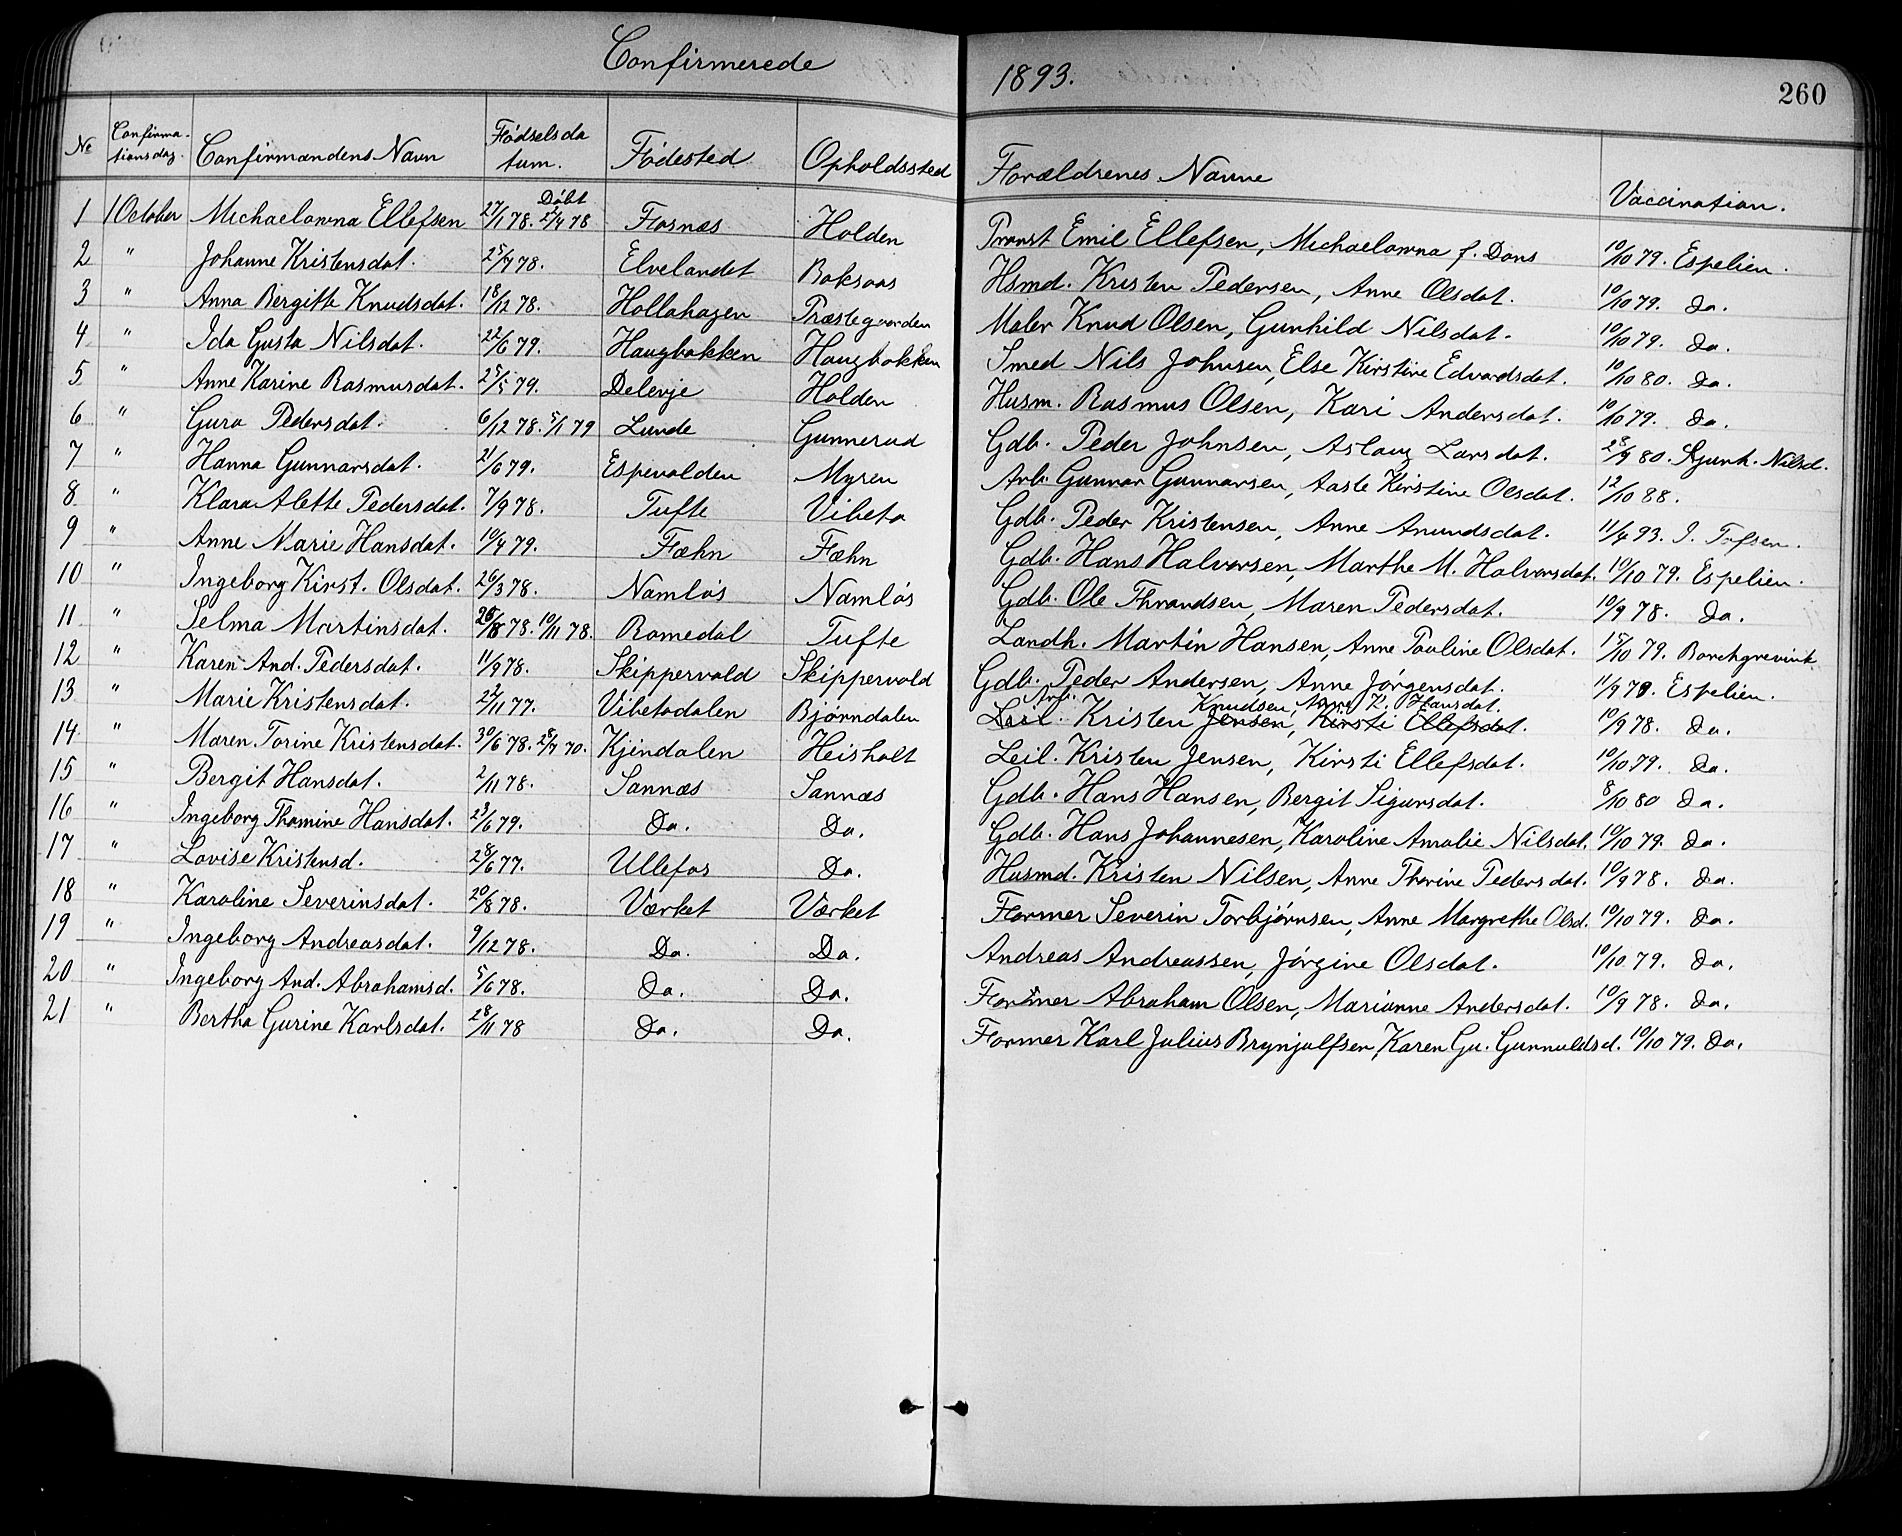 Confirmerede 1893. 260
№ Confirmationsdag. Confirmandens Navn Fødselsdatum. Fødested Opholdssted Forældrenes Navne Vaccination.
1 1 October Michaelowna Ellefsen 27/1 78. Døbt 27/4 78 Fosnæs Holden Provst Emil Ellefsen, Michaelowna f. Dons 10/10 79. Espelien.
2 " Johanne Kristensdat. 25/7 78. Elvelandet Boksaas Hsmd. Kristen Pedersen, Anne Olsdat. 10/10 79. Do.
3 " Anna Bergitte Knudsdat. 18/12 78. Hollahagen Præstegaarden Maler Knud Olsen, Gunhild Nilsdat. 10/10 79. Do.
4 " Ida Gusta Nilsdat. 22/6 79. Haugbakken Haugbakken Smed Nils Johnsen, Else Kirstine Edvardsdat. 10/10 80. Do.
5 " Anne Karine Rasmusdat. 25/5 79. Delevje Holden Husm. Rasmus Olsen, Kari Andersdat. 10/10 79. Do.
6 " Guro Pedersdat. 6/12 78. 5/1 79 Lunde Gunnerud Gdb. Peder Johnsen, Aslaug Larsdat. 23/9 80. Gunh. Nilsd.
7 " Hanna Gunnarsdat. 21/6 79. Espevolden Myren Arb. Gunnar Gunnarsen, Aaste Kirstine Olsdat. 12/10 88.
8 " Klara Alette Pedersdat. 7/9 78. Tufte Vibeto Gdb. Peder Kristensen, Anne Amundsdat. 11/4 93. J. Tofsen.
9 " Anne Marie Hansdat. 10/4 79. Fæhn Fæhn Gdb. Hans Halvorsen, Marthe M. Halvorsdat. 10/10 79. Espelien.
10 " Ingeborg Kirst. Olsdat. 26/3 78. Namløs Namløs Gdb. Ole Thrandsen, Maren Pedersdat. 10/9 78. Do.
11 " Selma Martinsdat. 26/8 78. 10/11 78. Romedal Tufte Landh. Martin Hansen, Anne Pauline Olsdat. 15/10 79. Borchgrevink
12 " Karen And. Pedersdat. 11/9 78. Skippervold Skippervold Gdb. Peder Andersen, Anne Jørgensdat. 11/9 79. Espelien.
13 " Marie Kristensdat. 22/11 77. Vibetodalen Bjørndalen Arb. Knudsen, Anne K. Hansdat. Leil. Kristen Jensen, Kirsti Ellefsdat. 10/9 78. Do.
14 " Maren Torine Kristensdat. 30/6 78. 28/7 70. Kjendalen Heisholt Leil. Kristen Jensen, Kirsti Ellefsdat. 10/10 79. Do.
15 " Bergit Hansdat. 2/11 78. Sannæs Sannæs Gdb. Hans Hansen, Bergit Sigursdat. 8/10 80 Do.
16 " Ingeborg Thomine Hansdat. 23/6 79. Do. Do. Gdb. Hans Johannesen, Karoline Amalie Nilsdat. 10/10 79. Do.
17 " Lovise Kristensd. 28/6 77. Ullefos Do. Husmd. Kristen Nilsen, Anne Thorine Pedersdat. 10/9 78. Do.
18 " Karoline Severinsdat. 20/8 78. Værket Værket Former Severin Torbjørnsen, Anne Margrethe Olsd. 10/10 79. Do.
19 " Ingeborg Andreasdat. 9/12 78. Do. Do. Andreas Andreassen, Jørgine Olsdat. 10/10. 79. Do.
20 " Ingeborg And. Abrahamsd. 5/6 78. Do. Do. Former Abraham Olsen, Marianne Andersdat. 10/9 78. Do.
21 " Bertha Gurine Karlsdat. 28/11 78 Do. Do. Former Karl Julius Brynjulfsen, Karen Gu. Gunnuldsd. 10/10 79. Do.